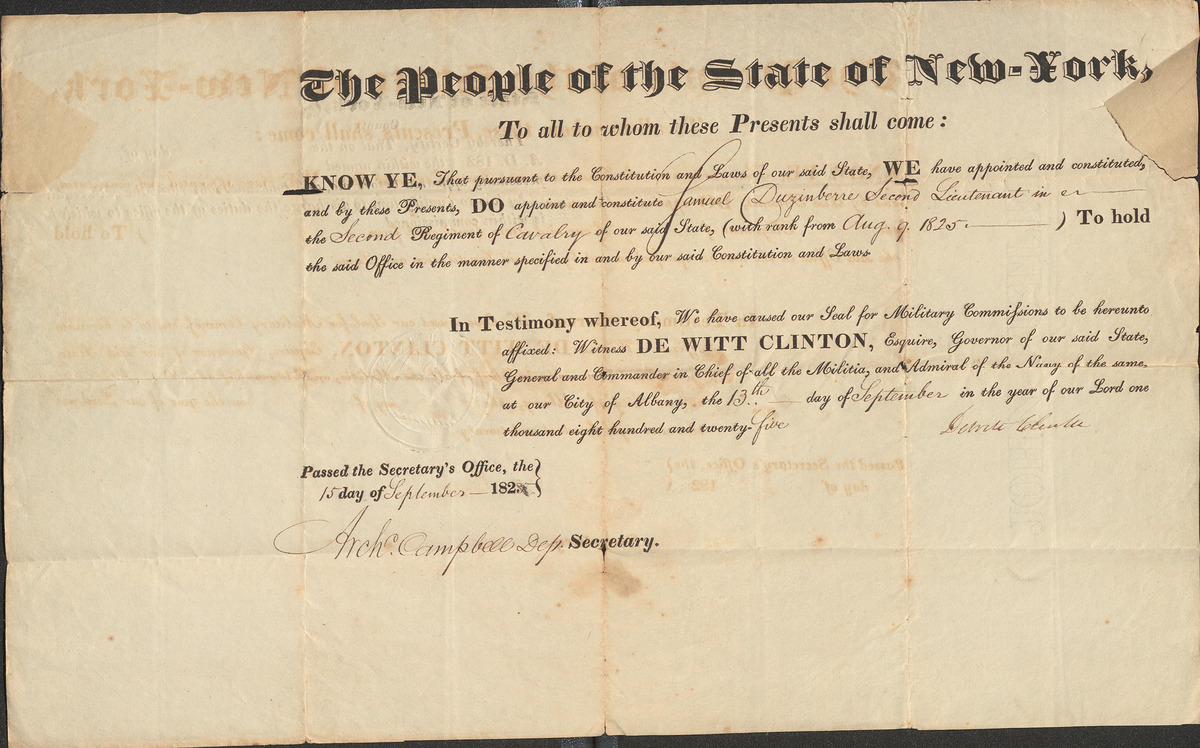 The People of the State of New-York,
To all to whom these Presents shall come:
KNOW YE, That pursuant to the Constitution and Laws of our said State, WE have appointed and constituted,
and by these Presents, DO appoint and constitute Samuel Duzinberre Second Lieutenant in
the Second Regiment of Cavalry of our said State, (with rank from Aug. 9. 1825. ) To hold
the said Office in the manner specified in and by our said Constitution and Laws.
In Testimony whereof, We have caused our Seal for Military Commissions to be hereunto
affixed: Witness DE WITT CLINTON, Esquire, Governor of our said State,
General and Commander in Chief of all the Militia, and Admiral of the Navy of the same,
at our City of Albany, the 13th day of September in the year of our Lord one
thousand eight hundred and twenty-five
Dewitt Clinton
Passed the Secretary's Office, the
15 day of September 1825
Archd. Campbell Dep. Secretary.